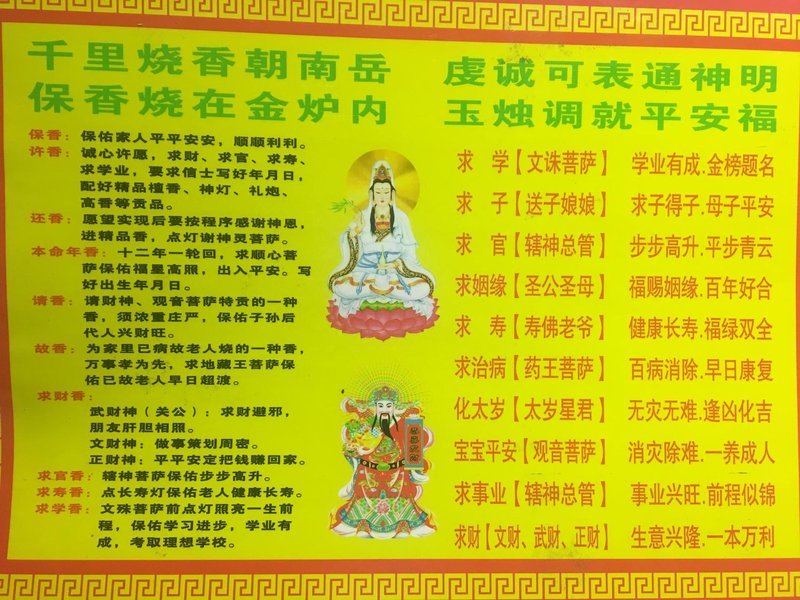 千里烧香朝南岳
保香烧在金炉内
虔诚可表通神明
玉烛调就平安福
保香：保佑家人平平安安，顺顺利利。
许香：诚心许愿，求财、求官、求寿、
求学业，要求信士写好年月日，
配好精品檀香、神灯、礼炮、
高香等贡品。
还香：愿望实现后要按程序感谢神恩，
进精品香，点灯谢神灵菩萨。
本命年香：十二年一轮回，求顺心菩
萨保佑福星高照，出入平安。写
好出生年月日。
请香：请财神、观音菩萨特贡的一种
香，须浓重庄严，保佑子孙后
代人兴财旺。
故香：为家里已病故老人烧的一种香，
万事孝为先，求地藏王菩萨保
佑已故老人早日超渡。
求财香：
武财神（关公）：求财避邪，
朋友肝胆相照。
文财神：做事策划周密。
正财神：平平安定把钱赚回家。
求官香：辖神菩萨保佑步步高升。
求寿香：点长寿灯保佑老人健康长寿。
求学香：文殊菩萨前点灯照亮一生前
程，保佑学习进步，学业有
成，考取理想学校。
求 学【文诛菩萨】 学业有成.金榜题名
求 子【送子娘娘】 求子得子.母子平安
求 官【辖神总管】 步步高升.平步青云
求姻缘【圣公圣母】 福赐姻缘.百年好合
求 寿【寿佛老爷】 健康长寿.福绿双全
求治病【药王菩萨】 百病消除.早日康复
化太岁【太岁星君】 无灾无难.逢凶化吉
宝宝平安【观音菩萨】 消灾除难.一养成人
求事业【辖神总管】 事业兴旺.前程似锦
求财【文财、武财、正财】 生意兴隆.一本万利